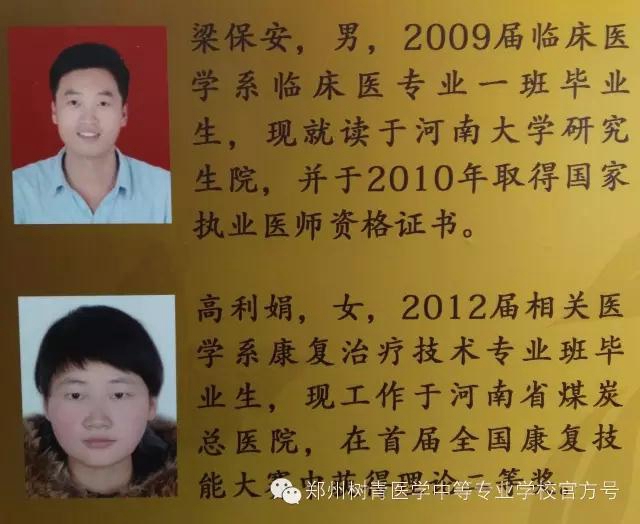 梁保安，男，2009届临床医
学系临床医专业一班毕业
生，现就读于河南大学研究
生院，并于2010年取得国家
执业医师资格证书。
高利娟，女，2012届相关医
学系康复治疗技术专业班毕
业生，现工作于河南省煤炭
总医院，在首届全国康复技
能大赛中获得理论二等奖。
郑州树青医学中等专业学校官方号